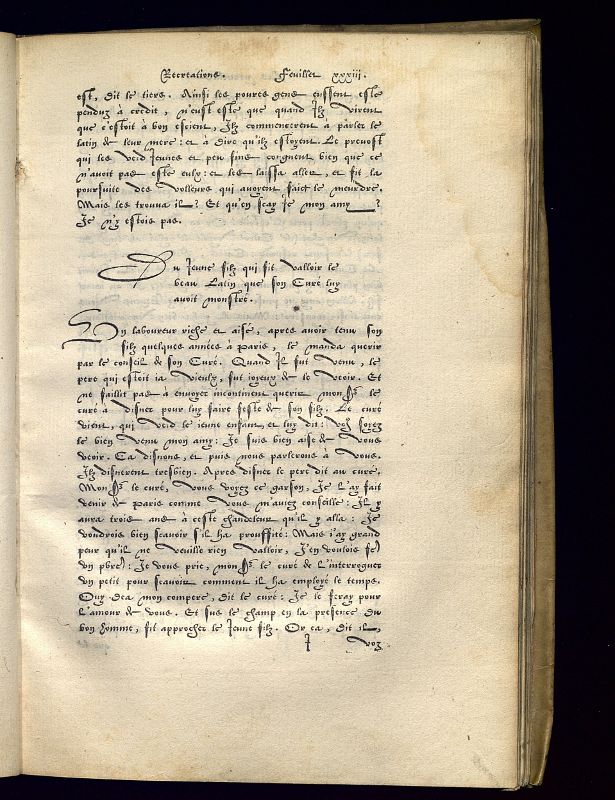 Recreations. Feuillet xxxiii.
est, dit le tiers. Ainsi les poures gens eussent esté
penduz à credit, n'eust esté que quand Ilz virent
que c'estoit à bon escient, Ilz commencerent à parler le
latin de leur mere: et à dire qu'ilz estoyent. Le prevost
qui les veid Jeunes et peu fins congneut bien que ce
n'avoit pas esté eulx: et les laissa aller, et fit la
poursuite des volleurs qui avoyent faict le meurdre.
Mais les trouva il? Et qu'en sçay Je mon amy?
Je n'y estois pas.
Du Jeune filz qui fit valloir le
beau Latin que son Curé luy
avoit monstré.
Un laboureur riche et aisé, apres avoir tenu son
filz quelques années à Paris, le manda querir
par le conseil de son Curé. Quand Il fut venu, le
pere qui estoit ia vieulx, fut ioyeux de le veoir. Et
ne faillit pas à envoyer incontinent querir monsr le
curé à disner pour luy faire feste de son filz. Le curé
vient, qui veid le ieune enfant, et luy dit: voz soyez
le bien venu mon amy: Je suis bien aise de vous
veoir. Ca disnons, et puis nous parlerons à vous.
Ilz disnerent tresbien. Apres disner le pere dit au curé.
Monsr le curé, vous voyez ce garson, Je l'ay fait
venir de Paris comme vous m'aviez conseillé: Il y
aura trois ans à ceste chandeleur qu'il y alla: Je
voudrois bien sçavoir s'il ha prouffité: Mais i'ay grand
peur qu'il ne veuille rien valloir, J'en voulois fe)
un pbre): Je vous prie, monsr le curé de l'interroguer
un petit pour sçavoir comment il ha employé le temps.
Ouy dea mon compere, dit le curé: Je le feray pour
l'amour de vous. Et sus le champ en la presence du
bon homme, fit approcher le Jeune filz. Or ça, dit il,
I voz